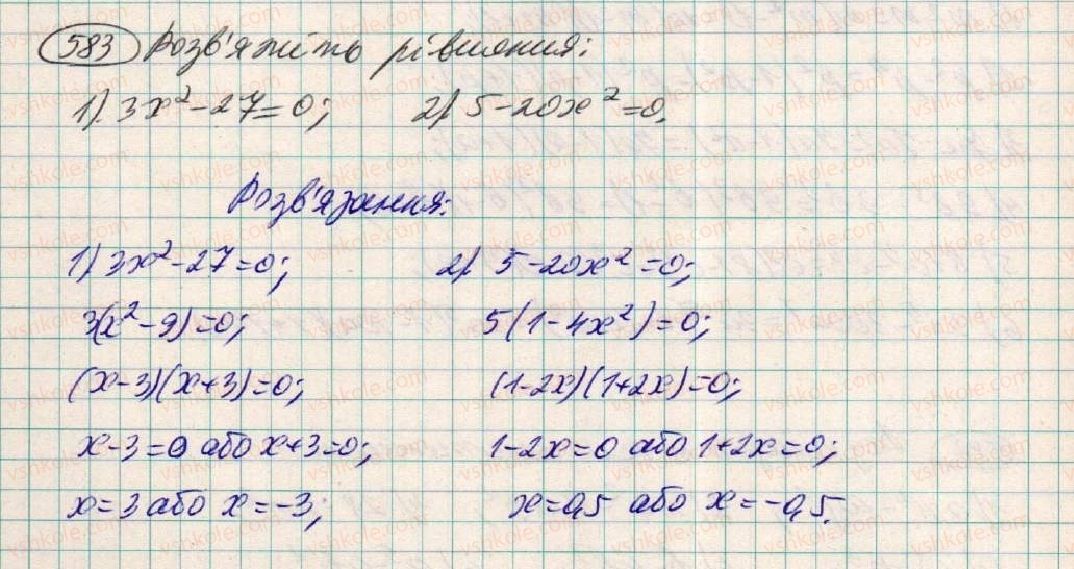 583 Розв'яжіть рівняння:
1) 3x²-27=0; 2) 5-20x²=0.
Розв'язання:
1) 3x²-27=0; 2) 5-20x²=0;
3(x²-9)=0; 5(1-4x²)=0;
(x-3)(x+3)=0; (1-2x)(1+2x)=0;
x-3=0 або x+3=0; 1-2x=0 або 1+2x=0;
x=3 або x=-3; x=0,5 або x=-0,5.